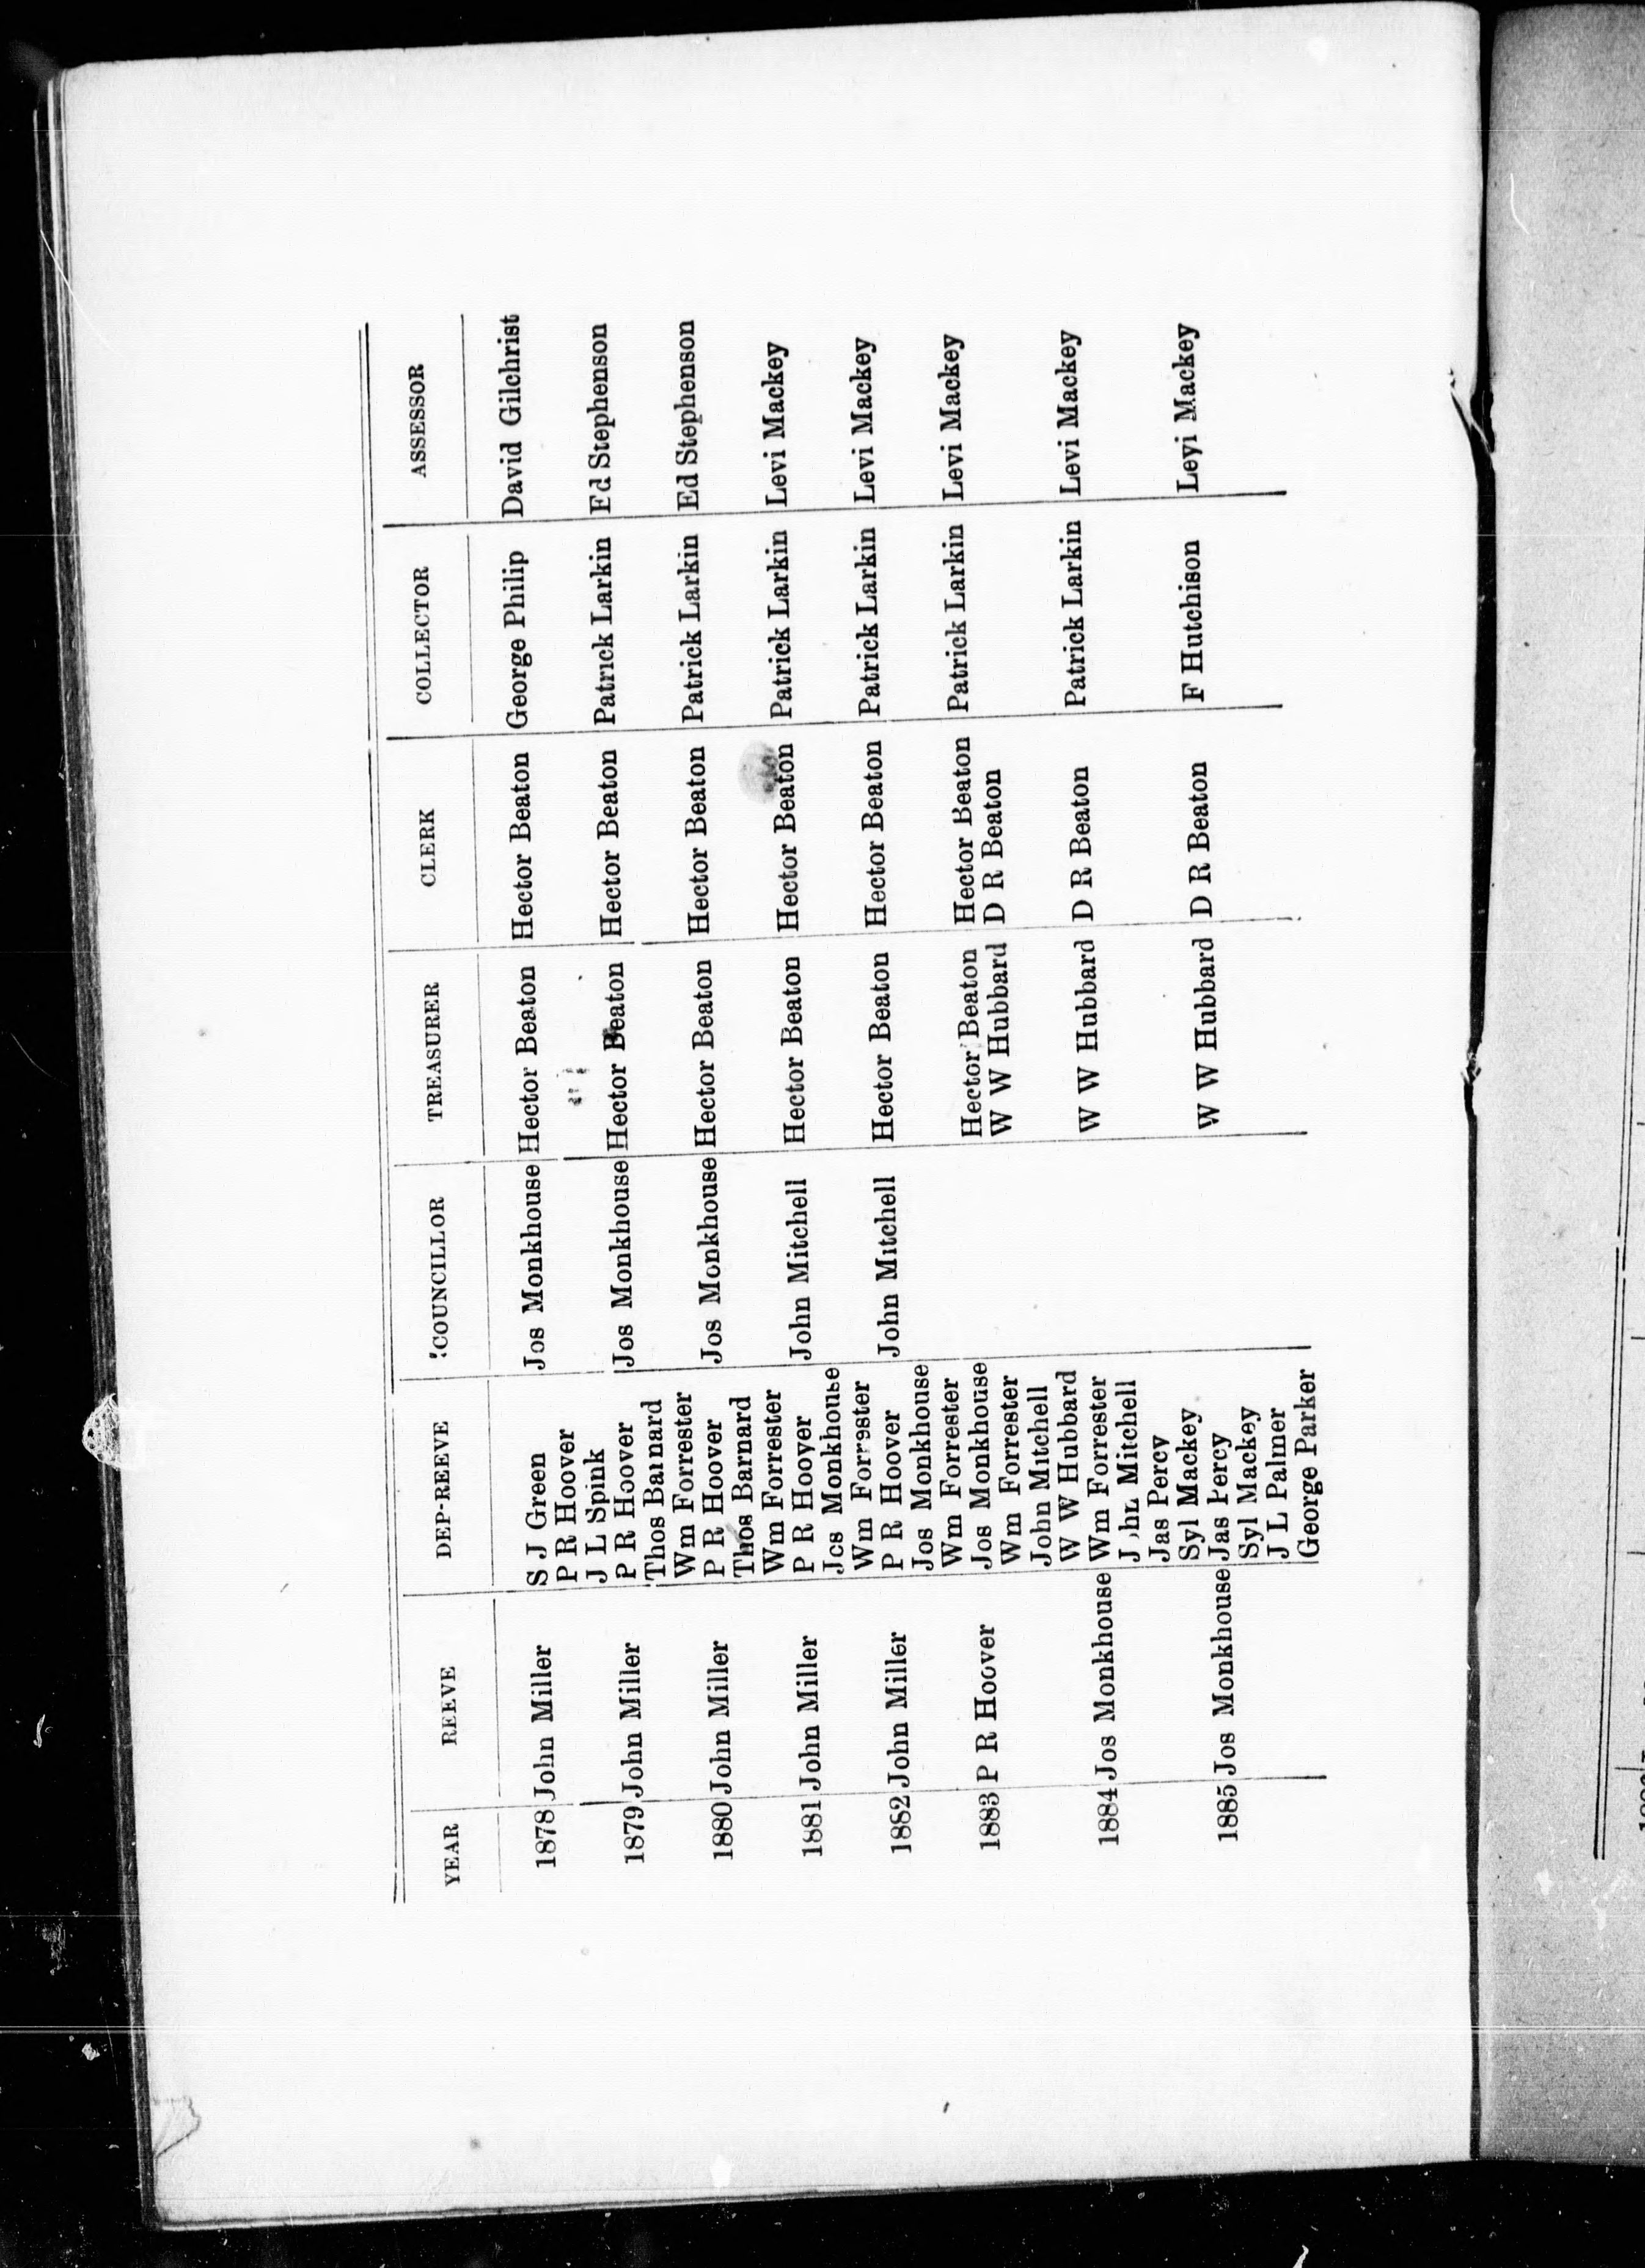 YEAR REEVE DEP-REEVE COUNCILLOR TREASURER CLERK COLLECTOR ASSESSOR
1878 John Miller S J Green Jos Monkhouse Hector Beaton Hector Beaton George Philip David Gilchrist
P R Hoover
J L Spink
1879 John Miller P R Hoover Jos Monkhouse Hector Beaton Hector Beaton Patrick Larkin Ed Stephenson
Thos Barnard
Wm Forrester
1880 John Miller P R Hoover Jos Monkhouse Hector Beaton Hector Beaton Patrick Larkin Ed Stephenson
Thos Barnard
Wm Forrester
1881 John Miller P R Hooyer John Mitchell Hector Beaton Hector Beaton Patrick Larkin Levi Mackey
Jos Monkhouse
Wm Forrester
1882 John Miller P R Hoover John Mitchell Hector Beaton Hector Beaton Patrick Larkin Levi Mackey
Jos Monkhouse
Wm Forrester
1883 P R Hoover Jos Monkhouse Hector Beaton Hector Beaton Patrick Larkin Levi Mackey
Wm Forrester W W Hubbard D R Beaton
John Mitchell
W W Hubbard
1884 Jos Monkhouse Wm Forrester W W Hubbard D R Beaton Patrick Larkin Levi Mackey
John Mitchell
Jas Percy
Syl Mackey
1885 Jos Monkhouse Jas Percy W W Hubbard D R Beaton F Hutchison Leyi Mackey
Syl Mackey
J L Palmer
George Parker